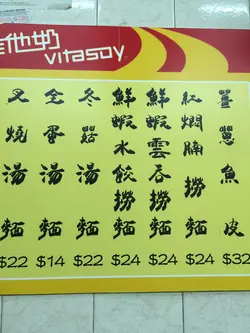 他奶
vitasoy
叉燒湯麵
$22
全蛋湯麵
$14
冬菇湯麵
$22
鮮蝦水餃撈麵
$24
鮮蝦雲吞撈麵
$24
紅燜腩撈麵
$24
薑蔥魚皮
$32